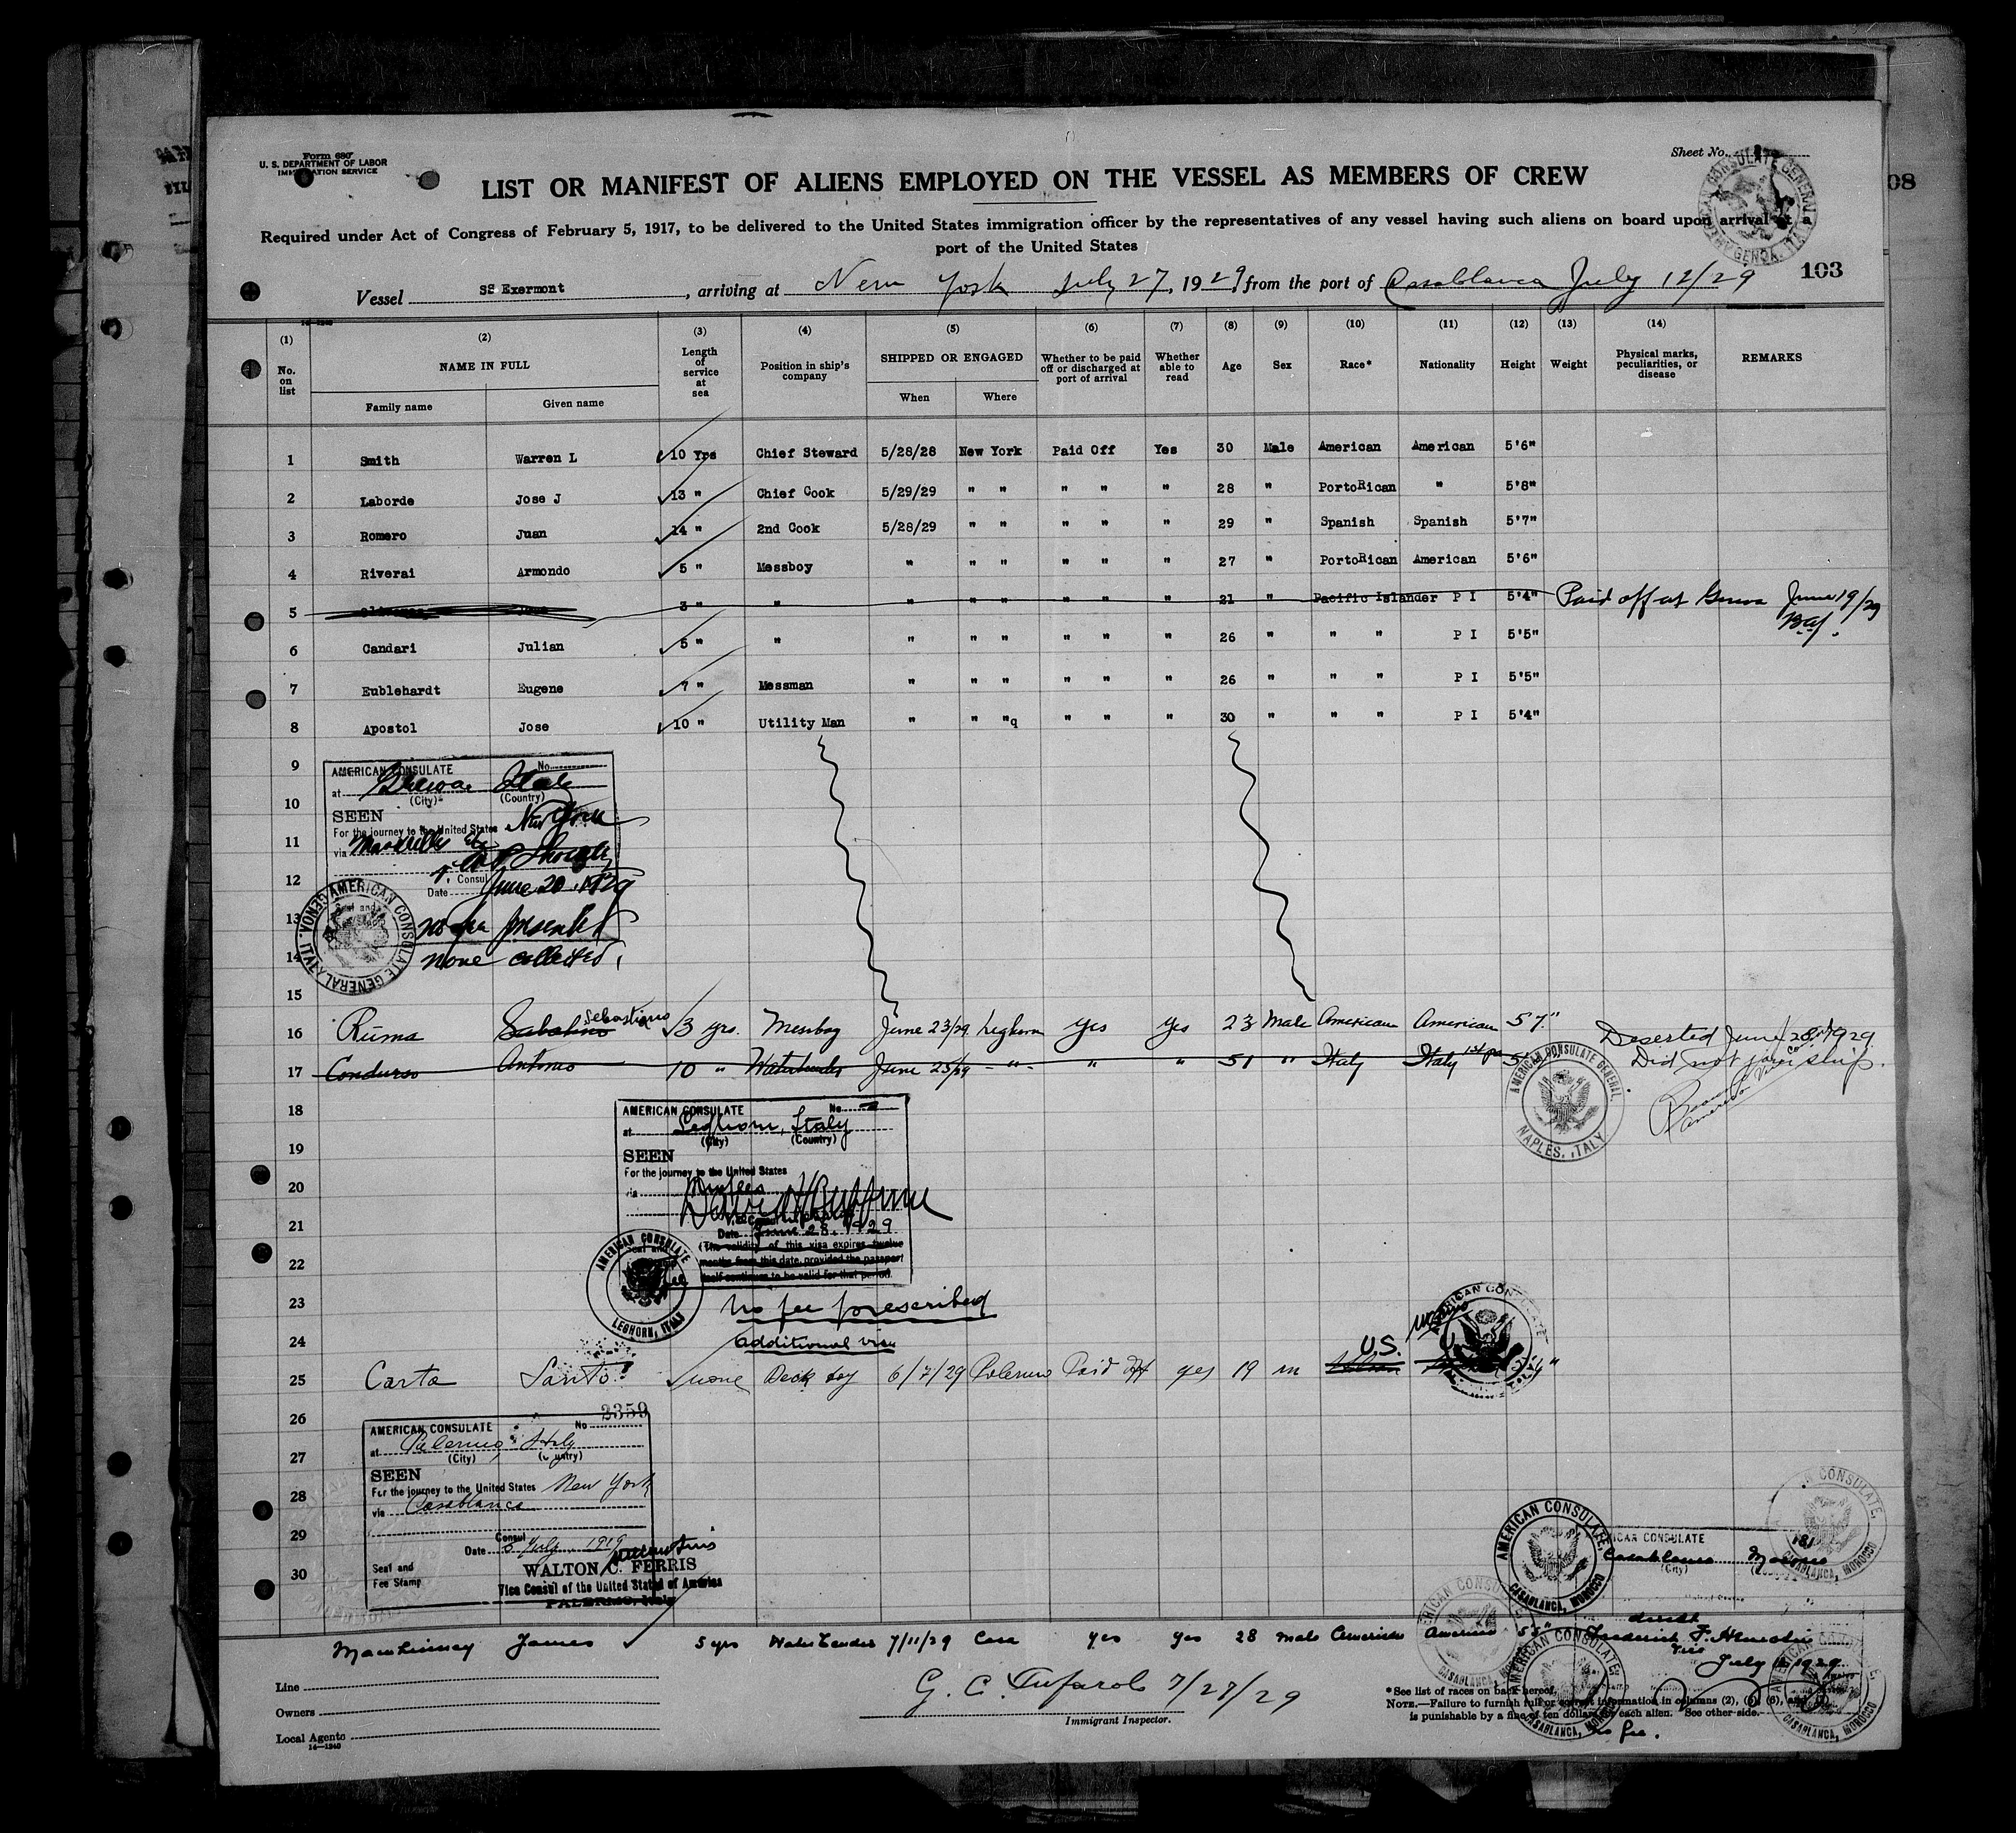 Form 680
U. S. DEPARTMENT OF LABOR
IMMIGRATION SERVICE
Sheet No.
LIST OR MANIFEST OF ALIENS EMPLOYED ON THE VESSEL AS MEMBERS OF CREW
08
Required under Act of Congress of February 5, 1917, to be delivered to the United States immigration officer by the representatives of any vessel having such aliens on board upon arrival at a
port of the United States
103
Vessel SS Exermont, arriving at New York July 27, 1929 from the port of Casablanca July 12/29
14-1240
(1) (2) (3) (4) (5) (6) (7) (8) (9) (10) (11) (12) (13) (14)
No. on list NAME IN FULL Length of service at sea Position in ship's company SHIPPED OR ENGAGED Whether to be paid off or discharged at port of arrival Whether able to read Age Sex Race* Nationality Height Weight Physical marks, peculiarities, or disease REMARKS
Family name Given name When Where
1 Smith Warren L 10 Yrs Chief Steward 5/28/28 New York Paid Off Yes 30 Male American American 5'6"
2 Laborde Jose J 13 " Chief Cook 5/29/29 " " " " " 28 " PortoRican " 5'8"
3 Romero Juan 14 " 2nd Cook 5/28/29 " " " " " 29 " Spanish Spanish 5'7"
4 Riverai Armondo 5 " Messboy " " " " " " 27 " PortoRican American 5'6"
5 3 " " " " " " " " 21 " Pacific Islander P I 5'4" Paid off at Genoa June 19/29
6 Candari Julian 5 " " " " " " " " 26 " " " P I 5'5"
7 Eublehardt Eugene 7 " Messman " " " " " " 26 " " " P I 5'5"
8 Apostol Jose 10 " Utility Man " " "q " " " 30 " " " P I 5'4"
9
10
11
12
13
14
15
AMERICAN CONSULATE No.
at Genoa Italy
(City) (Country)
SEEN
For the journey to the United States New York
via Marseille etc
Consul
Date June 20, 1929
AMERICAN CONSULATE GENERAL
GENOA, ITALY
no fee presented
none collected
16 Ruma Sabatino Sebastiano 3 yrs. Messboy June 23/29 Leghorn yes yes 23 Male American American 5'7" Deserted June 28th 1929
17 Condurso Antonio 10 " Watertender June 23/29 - " - " " 51 " Italy Italy Did not join ship.
AMERICAN CONSULATE GENERAL.
NAPLES, ITALY
18
19
20
21
22
23
24
AMERICAN CONSULATE No.
at Leghorn, Italy
(City) (Country)
SEEN
For the journey to the United States
via Naples
Date June 23, 1929
(The validity of this visa expires twelve
months from this date, provided the passport
itself continues to be valid for that period.
AMERICAN CONSULATE
LEGHORN, ITALY
no fee prescribed
additional visa
25 Carta Santo none Deck boy 6/7/29 Palermo Paid Off yes 19 m U.S.
26
27
28
29
30
2359
AMERICAN CONSULATE No
at Palermo Italy
(City) (Country)
SEEN
For the journey to the United States New York
via Casablanca
Consul
Date 6 July 1919
Seal and
Fee Stamp
WALTON C. FERRIS
Vice Consul of the United States of America
PALERMO, Italy
AMERICAN CONSULATE,
CASABLANCA, MOROCCO
AMERICAN CONSULATE
Casablanca Morocco
(City)
181
direct
Frederick F. Henrotin
Vice
July 11 1929
no fee.
Mawhinney James 5 yrs Water Tender 7/11/29 Casa yes yes 28 male American American 5'5"
Line
Owners
Local Agents
14-1240
7/27/29
Immigrant Inspector.
*See list of races on back hereof.
NOTE.—Failure to furnish full or correct information in columns (2), (5), (6), and (7)
is punishable by a fine of ten dollars for each alien. See other side.